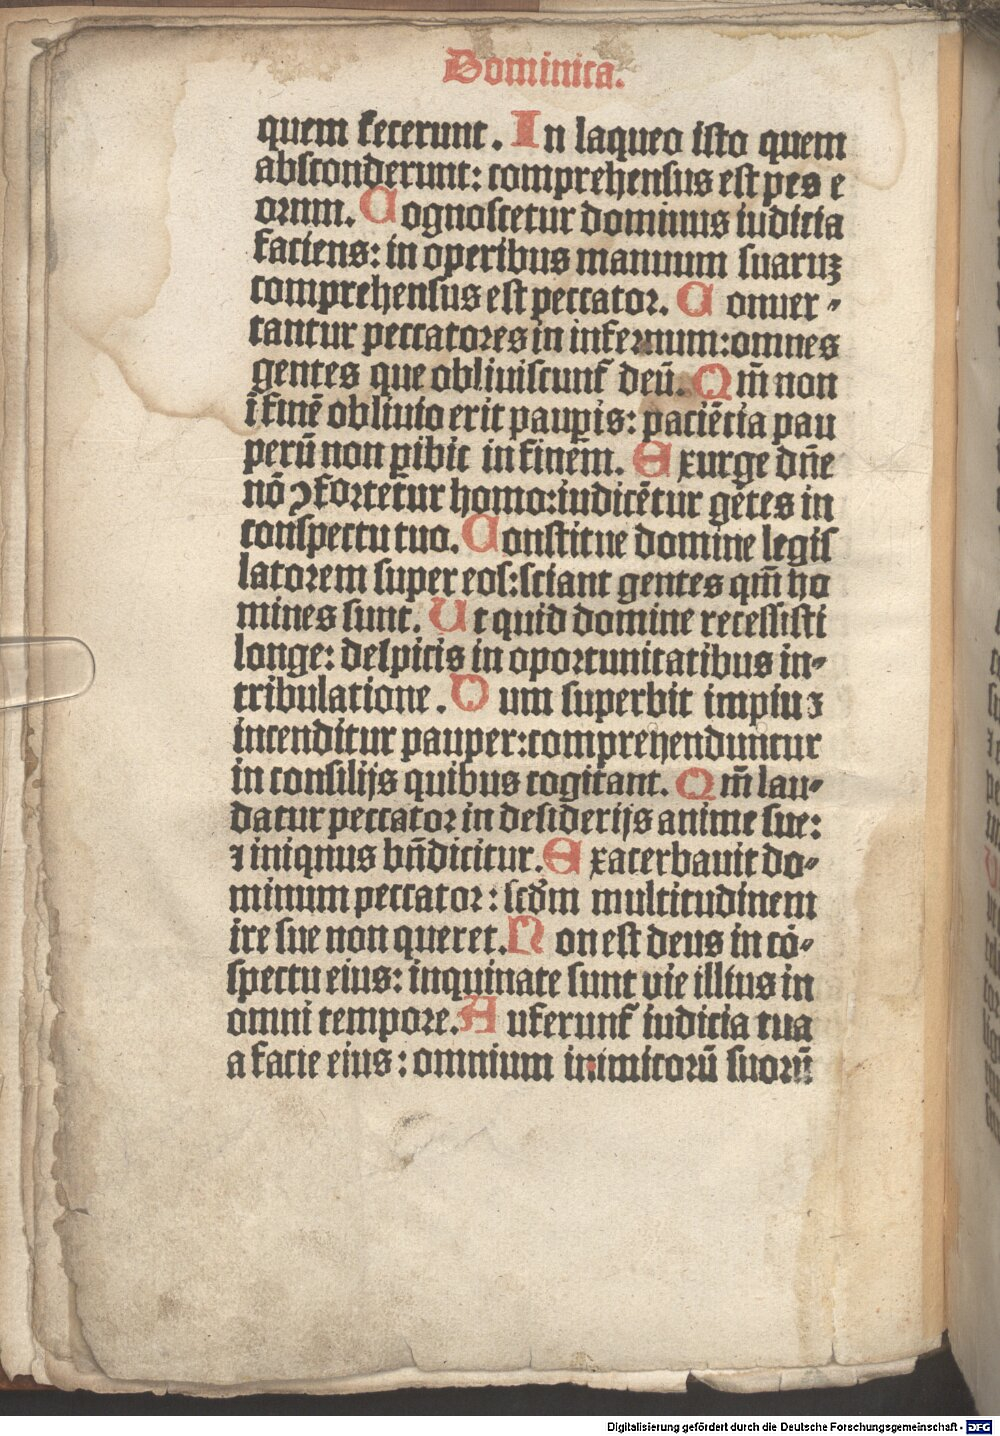 Dominica.
quem fecerunt. In laqueo isto quem
absconderunt: comprehensus est pes e
orum. Cognoscetur dominus iudicia
faciens: in operibus manuum suaruꝫ
comprehensus est peccator. Conuer-
tantur peccatores in infernum: omnes
gentes que obliuiscunt᷑ deū. Qm̄ non
ī finē obliuio erit paupis: paciētia pau
perū non ꝑibit in finem. Exurge dn̄e
nō ꝯfortet᷑ur homo: iudicētur gētes in
conspectu tuo. Constitue domine legis
latorem super eos: sciant gentes qm̄ ho
mines sunt. Ut quid domine recessisti
longe: despicis in oportunitatibus in-
tribulatione. Dum superbit impiuꝫ
incenditur pauper: comprehenduntur
in consilijs quibus cogitant. Qm̄ lau-
datur peccator in desiderijs anime sue:
⁊ iniquus bn̄dicitur. Exacerbauit do-
minum peccator: scd̓m multitudinem
ire sue non queret. Non est deus in cō-
spectu eius: inquinate sunt vie illius in
omni tempore. Auferunt᷑ iudicia tua
a facie eius: omnium inimicorū suorū
Digitalisierung gefördert durch die Deutsche Forschungsgemeinschaft - DFG